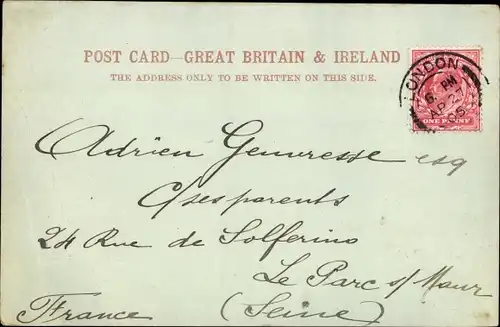 POST CARD—GREAT BRITAIN & IRELAND
THE ADDRESS ONLY TO BE WRITTEN ON THIS SIDE.
LONDON
6 PM
AP 2
05
ONE PENNY
Adrien esq
C/ ses parents
24 Rue de Solferino
Le Parc s/ Maur
France (Seine)